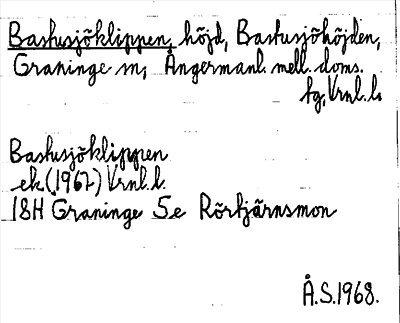 Bastusjöklippen, höjd, Bastusjöhöjden,
Graninge sn, Ångermanl. mell. doms.
tg, Vrnl. l.
Bastusjöklippen
ek. (1967) Vrnl. l.
18H Graninge 5e Rörtjärnsmon
Å.S. 1968.